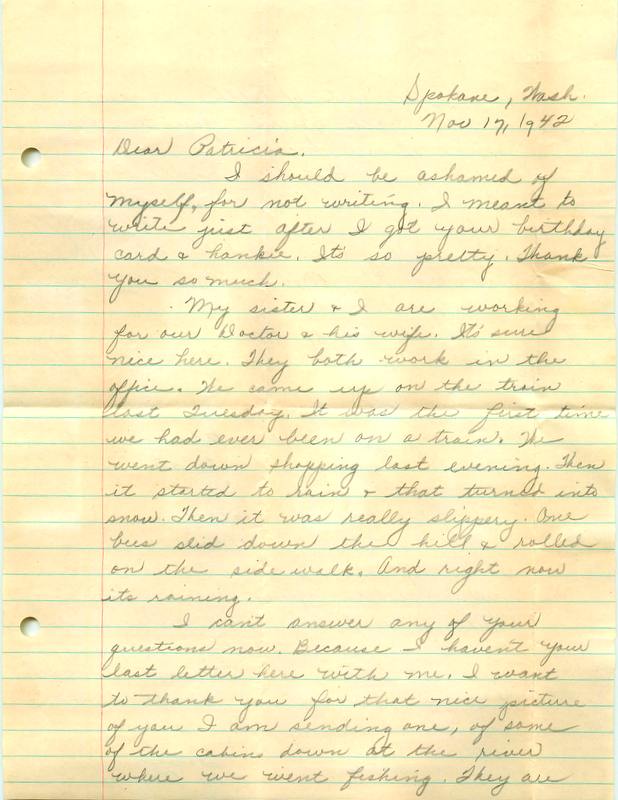 Spokane, Wash.
Nov 17, 1942
Dear Patricia.
I should be ashamed of
myself, for not writing. I meant to
write just after I got your birthday
card & hankie. It's so pretty. Thank
you so much.
My sister & I are working
for our Doctor & his wife. It's sure
nice here. They both work in the
office. We came up on the train
last Tuesday. It was the first time
we had ever been on a train. We
went down shopping last evening. Then
it started to rain & that turned into
snow. Then it was really slippery. One
bus slid down the hill & rolled
on the side walk. And right now
its raining.
I can't answer any of your
questions now. Because I haven't your
last letter here with me. I want
to thank you for that nice picture
of you I am sending one, of some
of the cabins down at the river
where we went fishing. They are